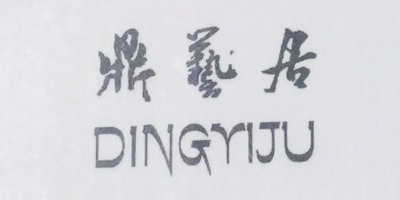 鼎藝居
DINGYIJU